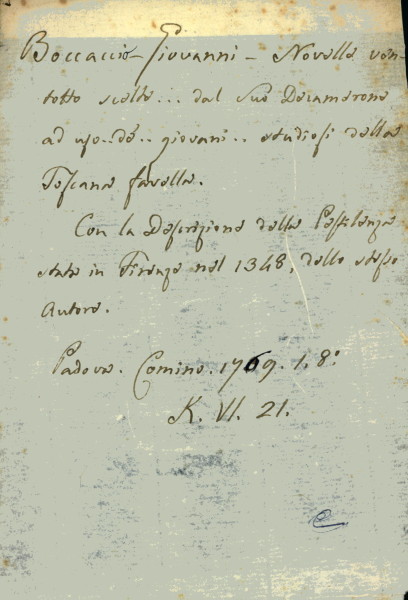 Boccaccio Giovanni - Novelle ven-
totto scelte... dal suo Decamerone
ad uso.. de'.. giovani.. studiosi della
Toscana favella.
Con la Descrizione della Pestilenza
stata in Firenze nel 1348, dello stesso
Autore.
Padova. Comino. 1769. 1. 8.°
K. VI. 21.